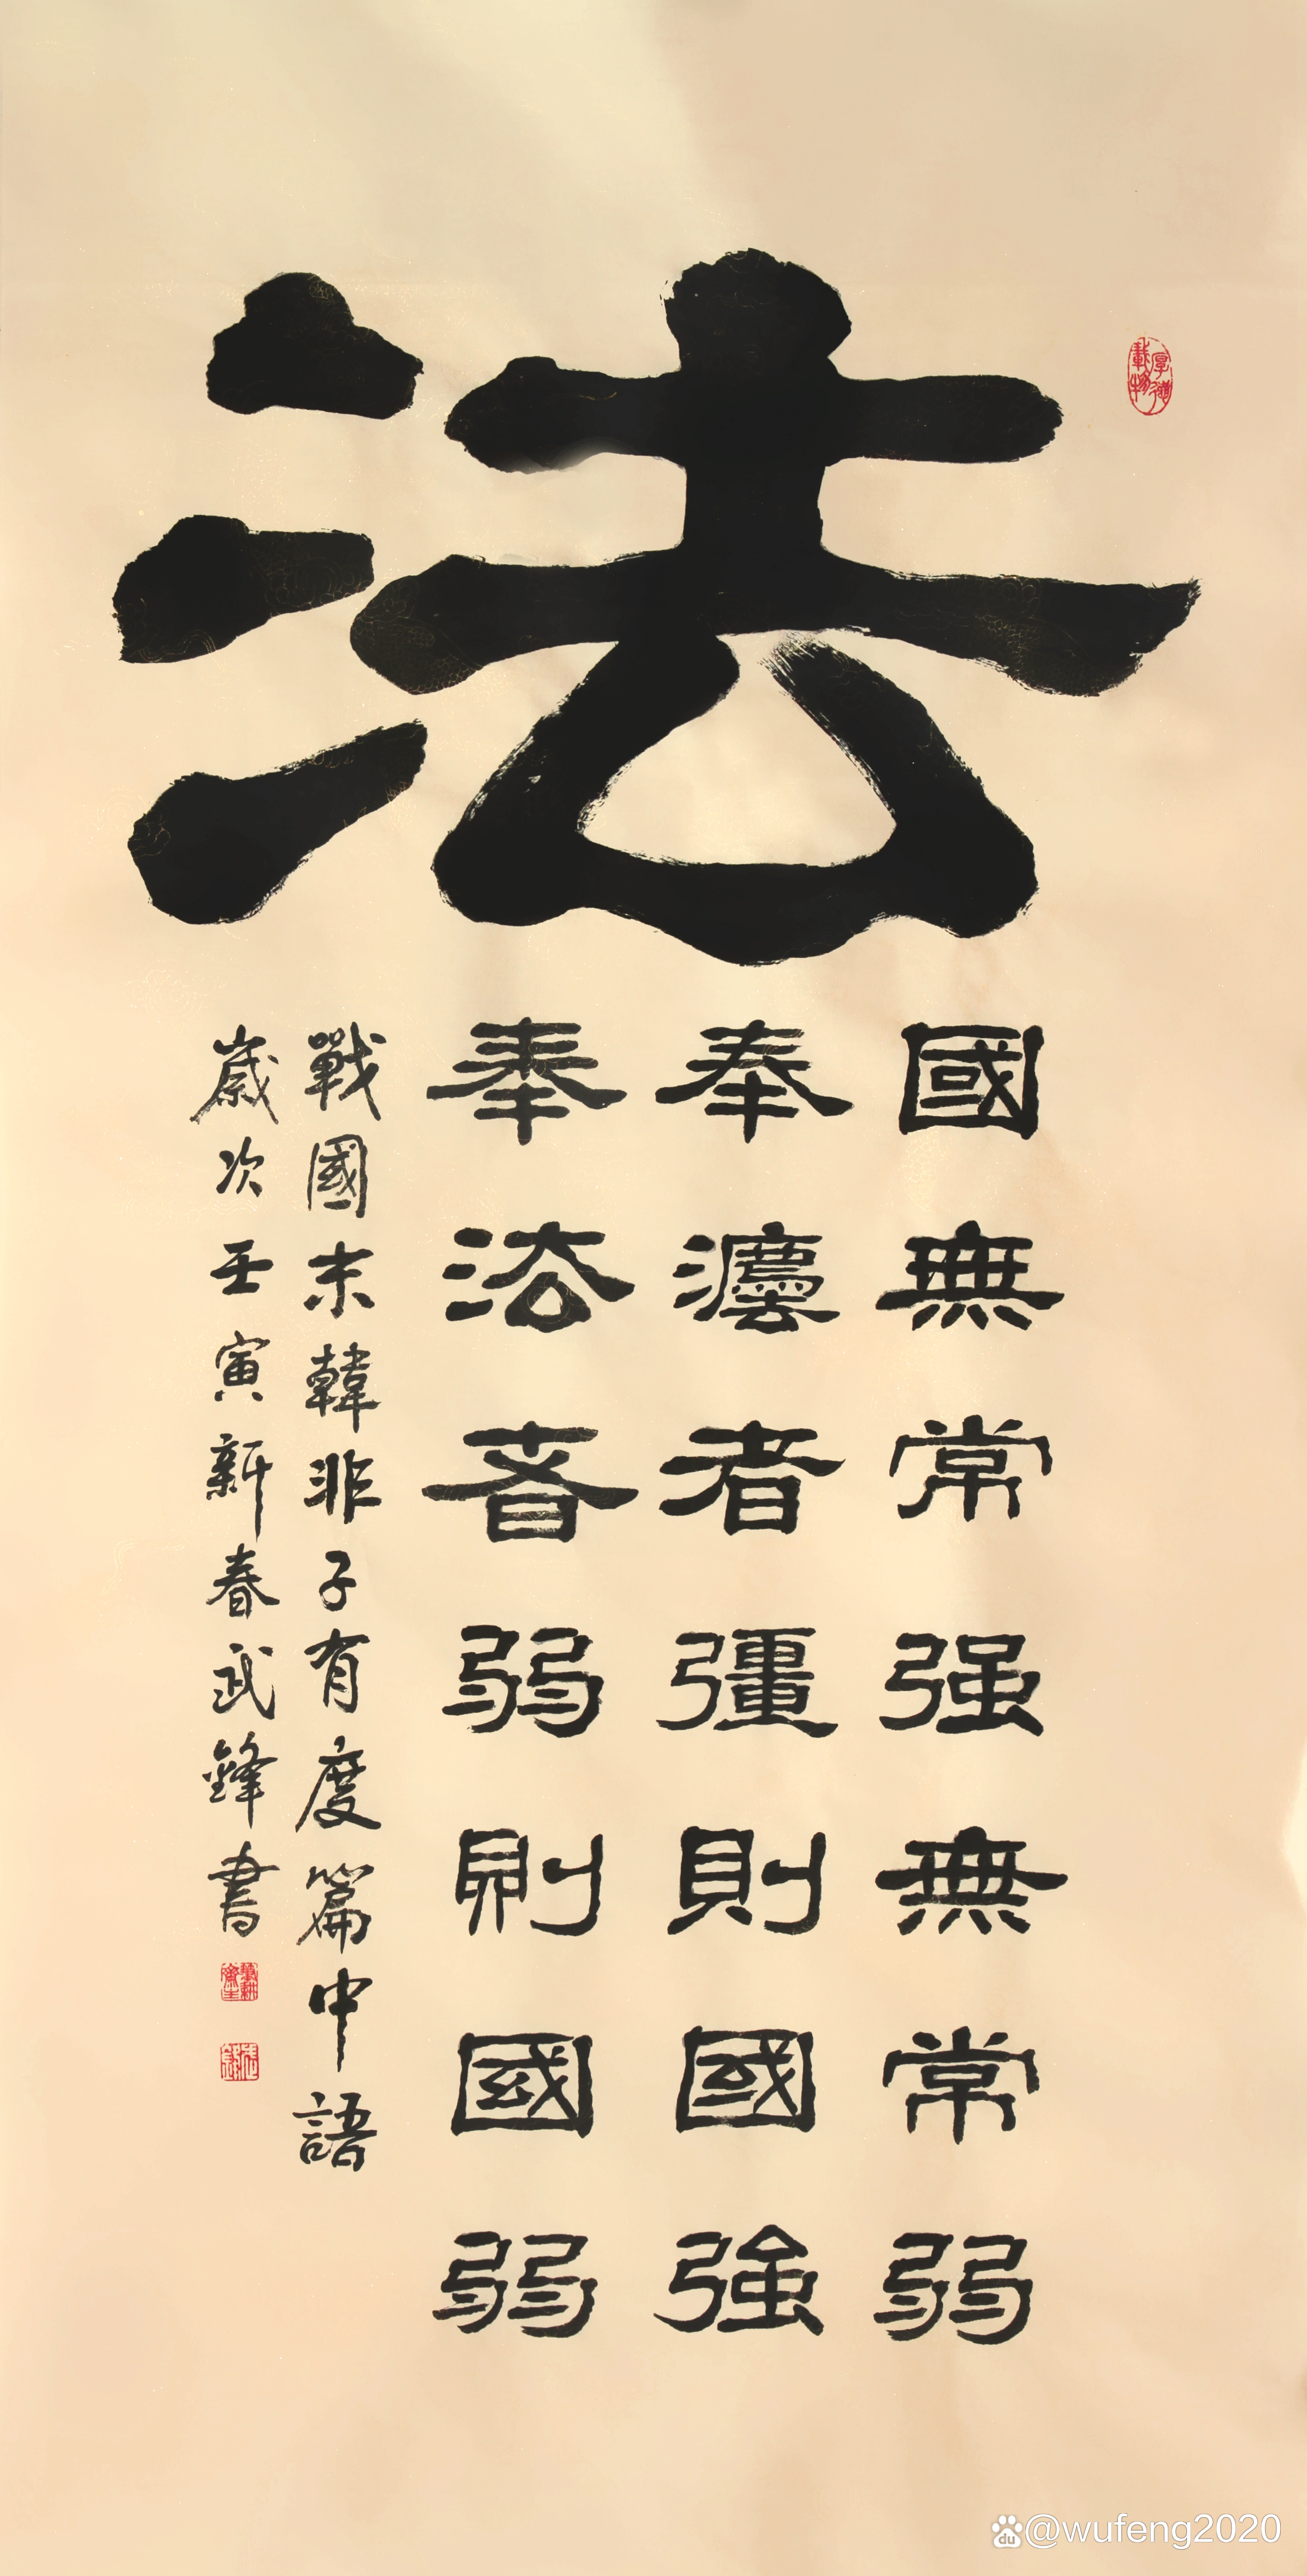 法
國無常强無常弱
奉灋者彊則國強
奉法者弱則國弱
戰國末韓非子有度篇中語
歲次壬寅新春武鋒書
厚德載物
du @wufeng2020